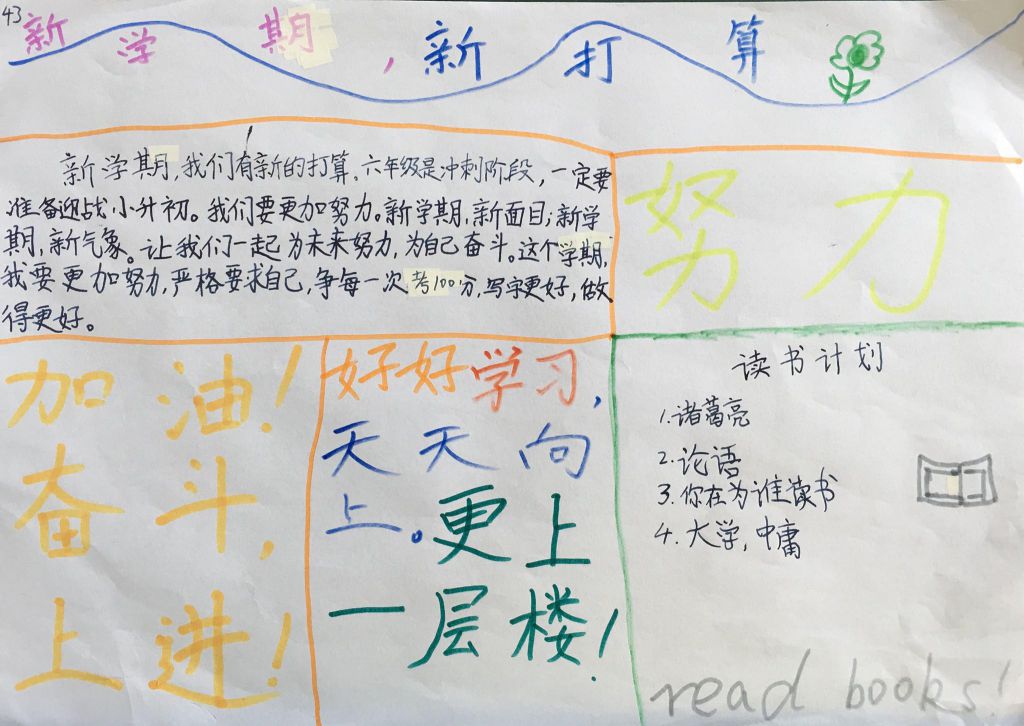 43
新学期,新打算
新学期,我们有新的打算。六年级是冲刺阶段,一定要
准备迎战小升初。我们要更加努力。新学期,新面目;新学
期,新气象。让我们一起为未来努力,为自己奋斗。这个学期,
我要更加努力,严格要求自己,争每一次考100分,写字更好,做
得更好。
努力
加油!
奋斗,
上进!
好好学习,
天天向
上。更上
一层楼!
读书计划
1.诸葛亮
2.论语
3.你在为谁读书
4.大学,中庸
read books!